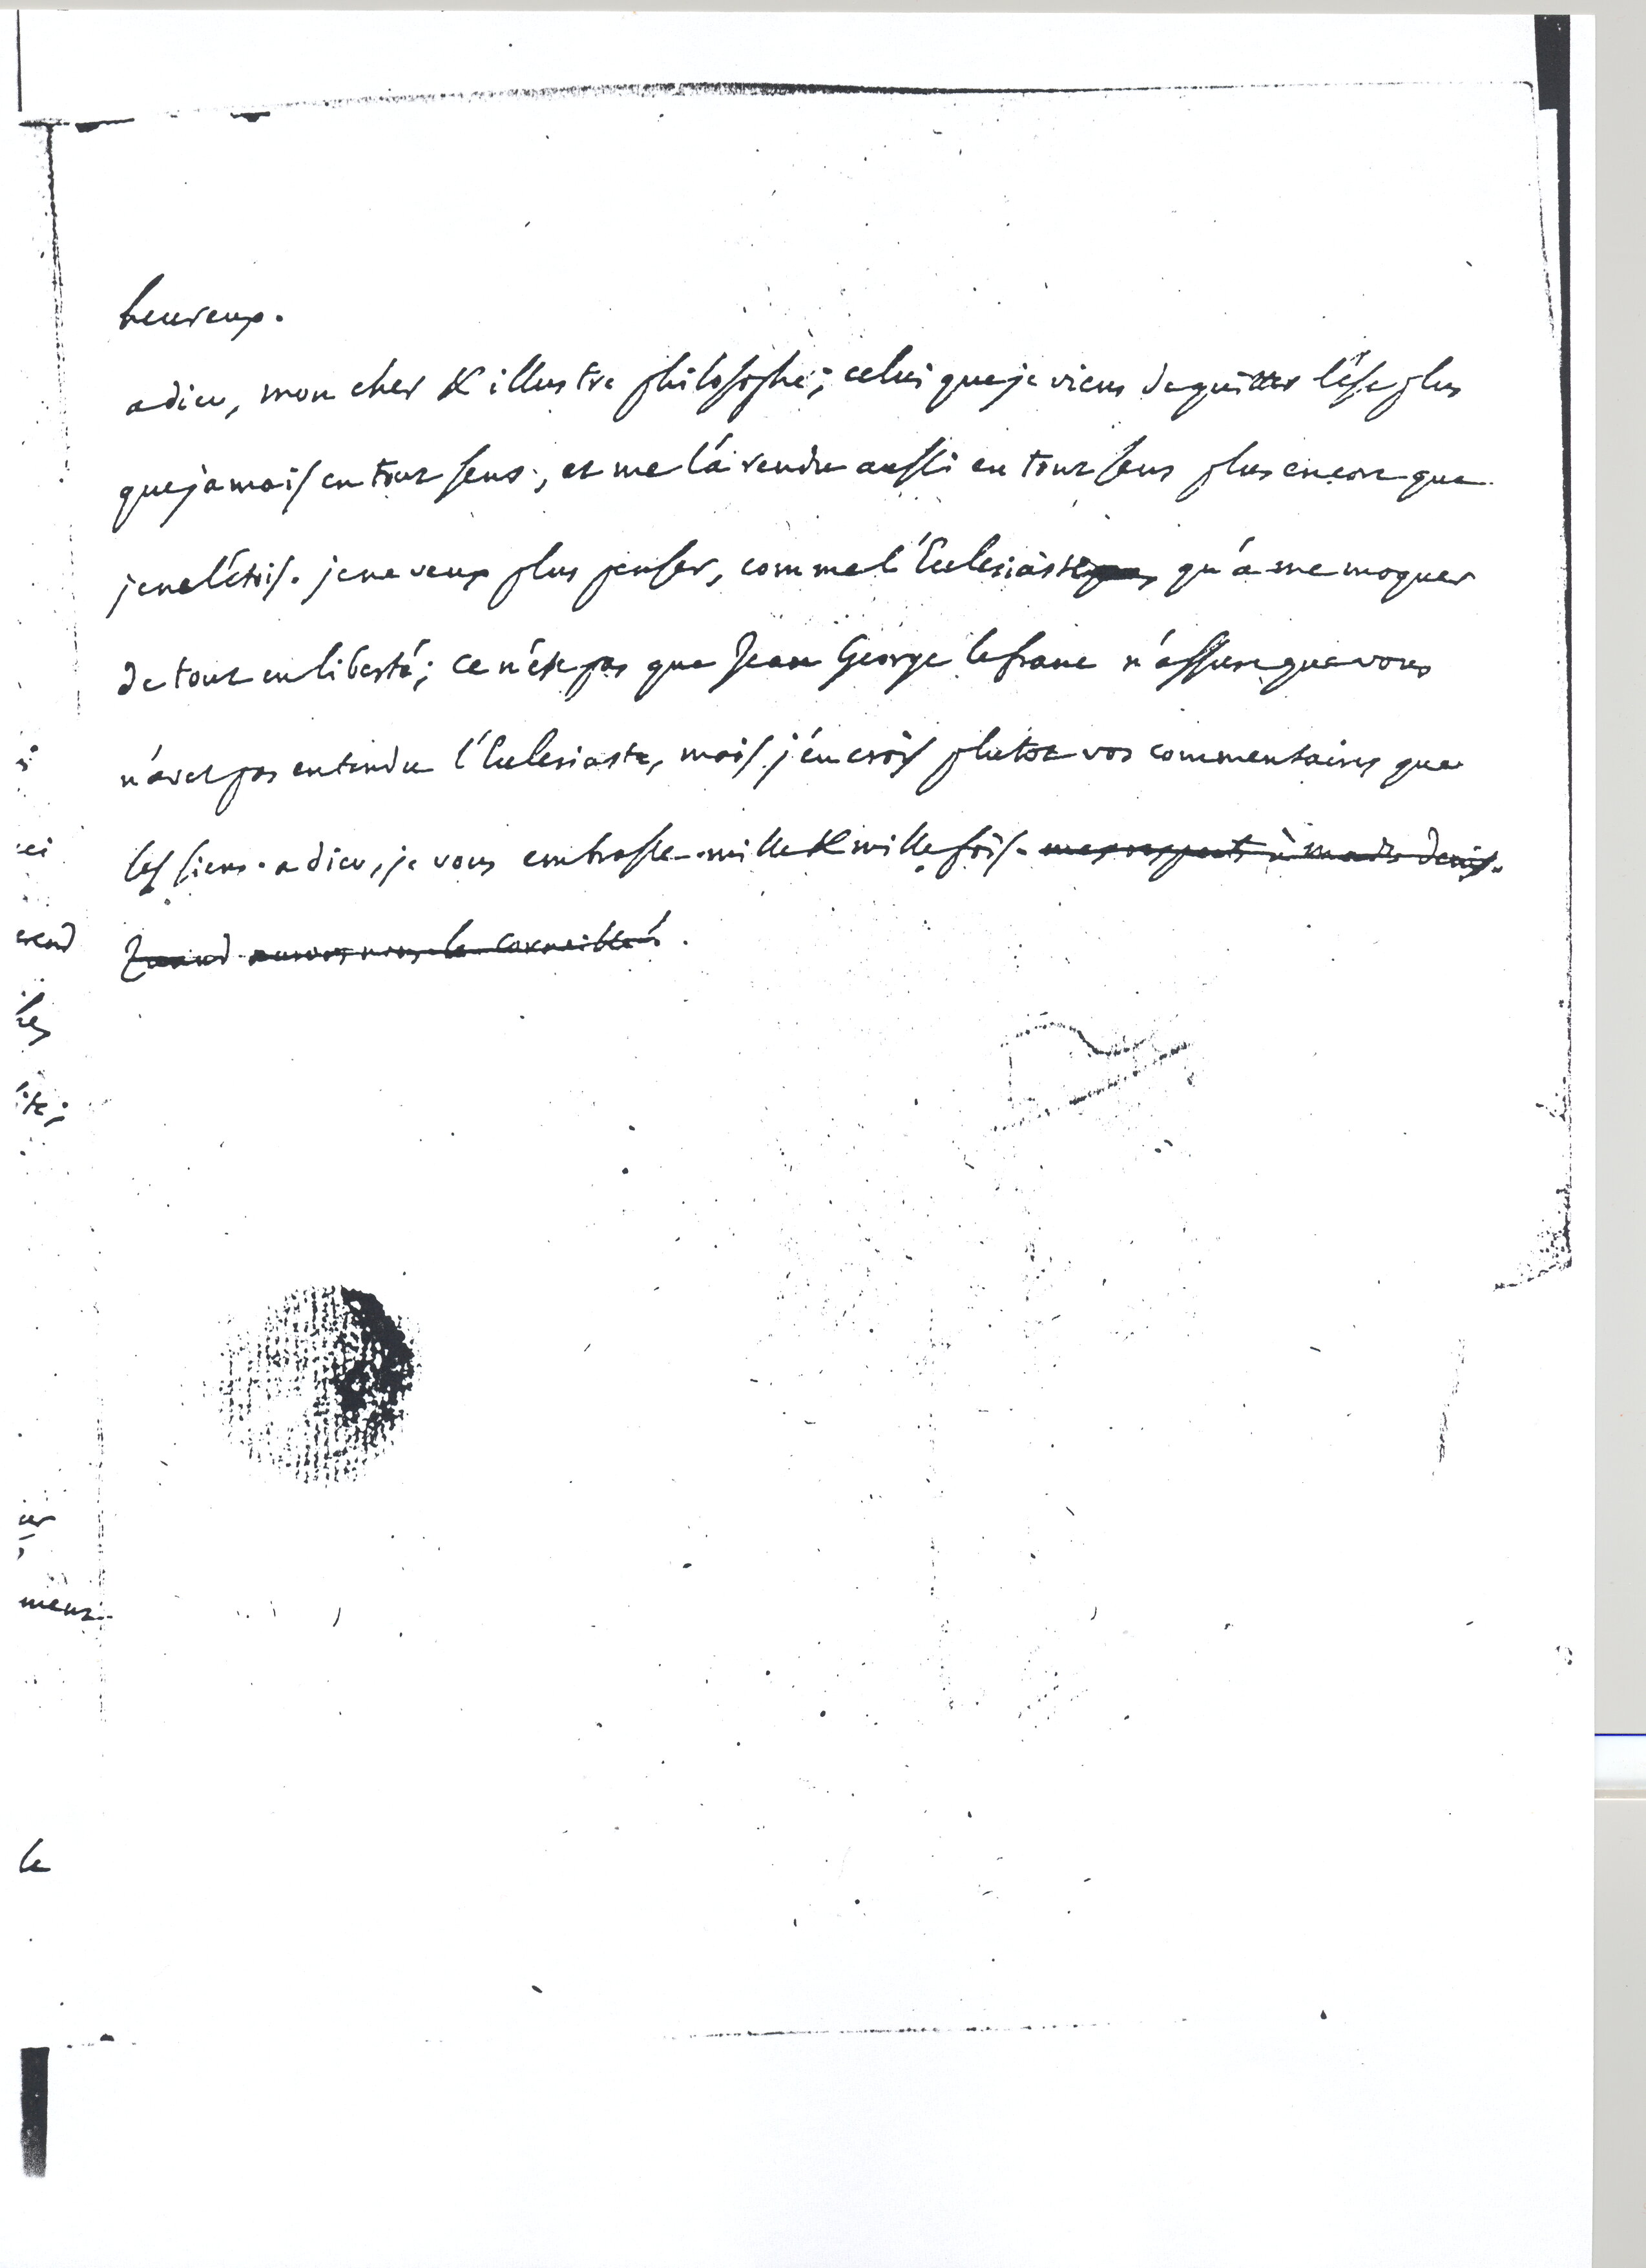 heureux.
adieu, mon cher & illustre philosophe; celui que je viens de quitter l'est plus
que jamais en tout sens; et me l'a rendu aussi en tout sens plus encore que
je ne l'étois. je ne veux plus penser, comme l'Ecclesiaste, qu'à me moquer
de tout en liberté; ce n'est pas que Jean George lefranc n'assure que vous
n'avez pas entendu l'Ecclesiaste, mais j'en crois plutot vos commentaires que
les siens. adieu, je vous embrasse mille & mille fois. mes respects à made denis.
Quand aurons nous le Corneille?
rend
ment
le